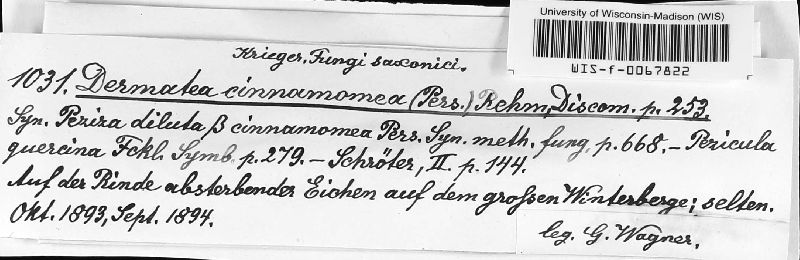 University of Wisconsin-Madison (WIS)
WIS-f-0067822
Krieger, Fungi saxonici.
1031. Dermatea cinnamomea (Pers.) Rehm, Discom. p. 253.
Syn. Peziza diluta β cinnamomea Pers. Syn. meth. fung. p. 668. – Pezicula
quercina Fckl. Symb. p. 279. – Schröter, II. p. 144.
Auf der Rinde absterbender Eichen auf dem großen Winterberge; selten.
Okt. 1893, Sept. 1894.
leg. G. Wagner.